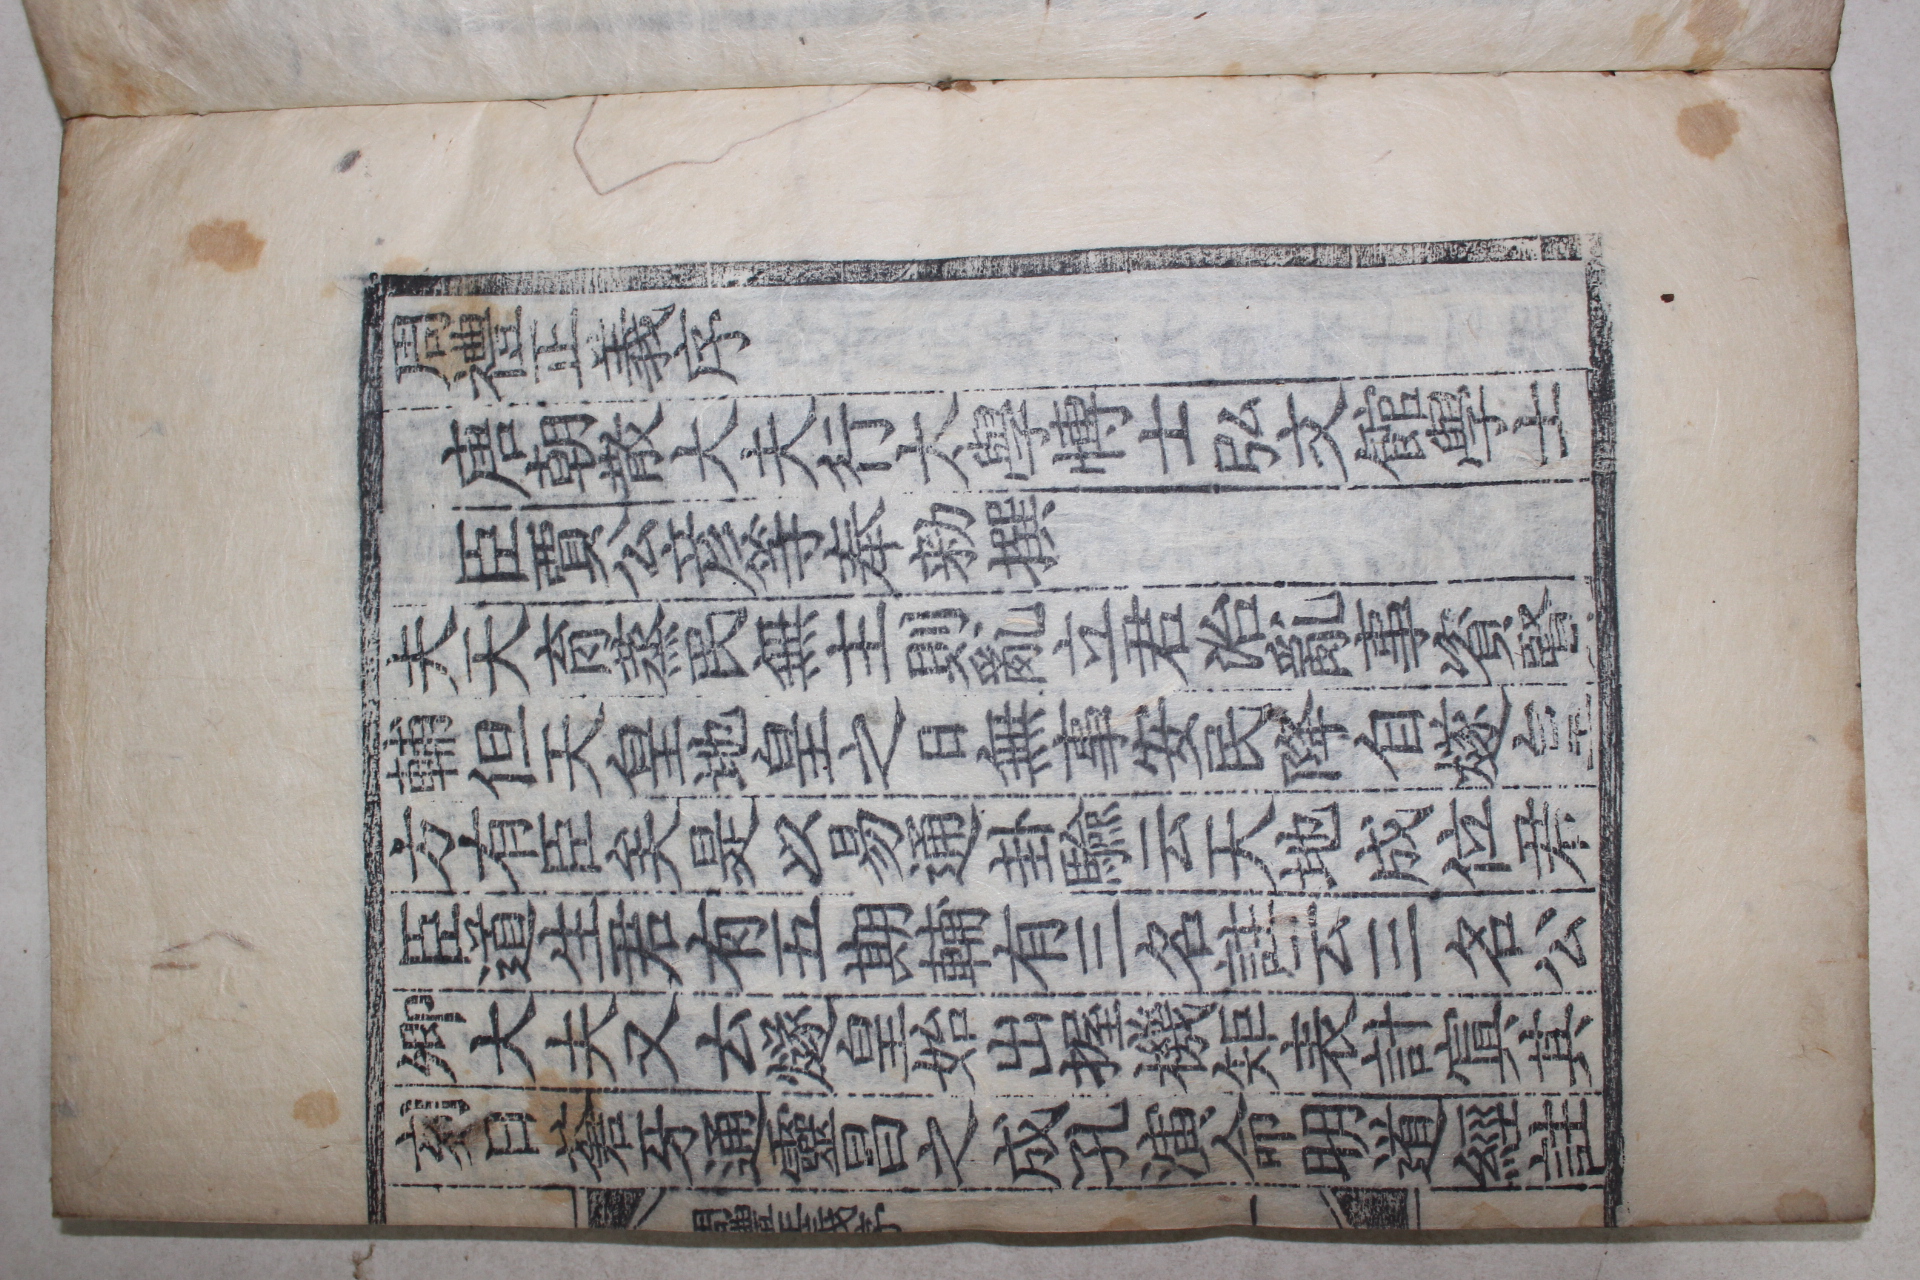 周禮正義序
唐朝散大夫行大學博士弘文館學士
臣賈公彦等奉勅撰
夫天育蒸民無主則亂立君治亂事資賢
輔但天皇地皇之日無事安民降自燧皇
方有臣矣是以易通卦驗云天地成位君
臣道生君有五期輔有三名註云三名公
卿大夫又云燧皇始出握機矩表計寘其
刻曰蒼牙通靈昌之成孔演命明道經註
周禮正義序 一